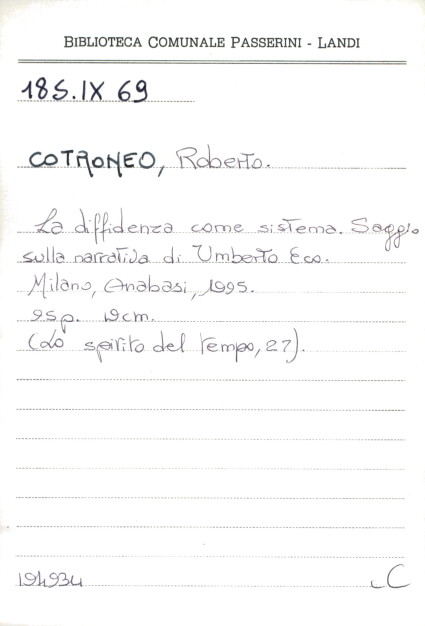 BIBLIOTECA COMUNALE PASSERINI - LANDI
18S.IX 69
COTRONEO, Roberto.
La diffidenza come sistema. Saggio
sulla narrativa di Umberto Eco.
Milano, Anabasi, 1995.
95p. 19cm.
(Lo spirito del tempo, 27).
194934 C